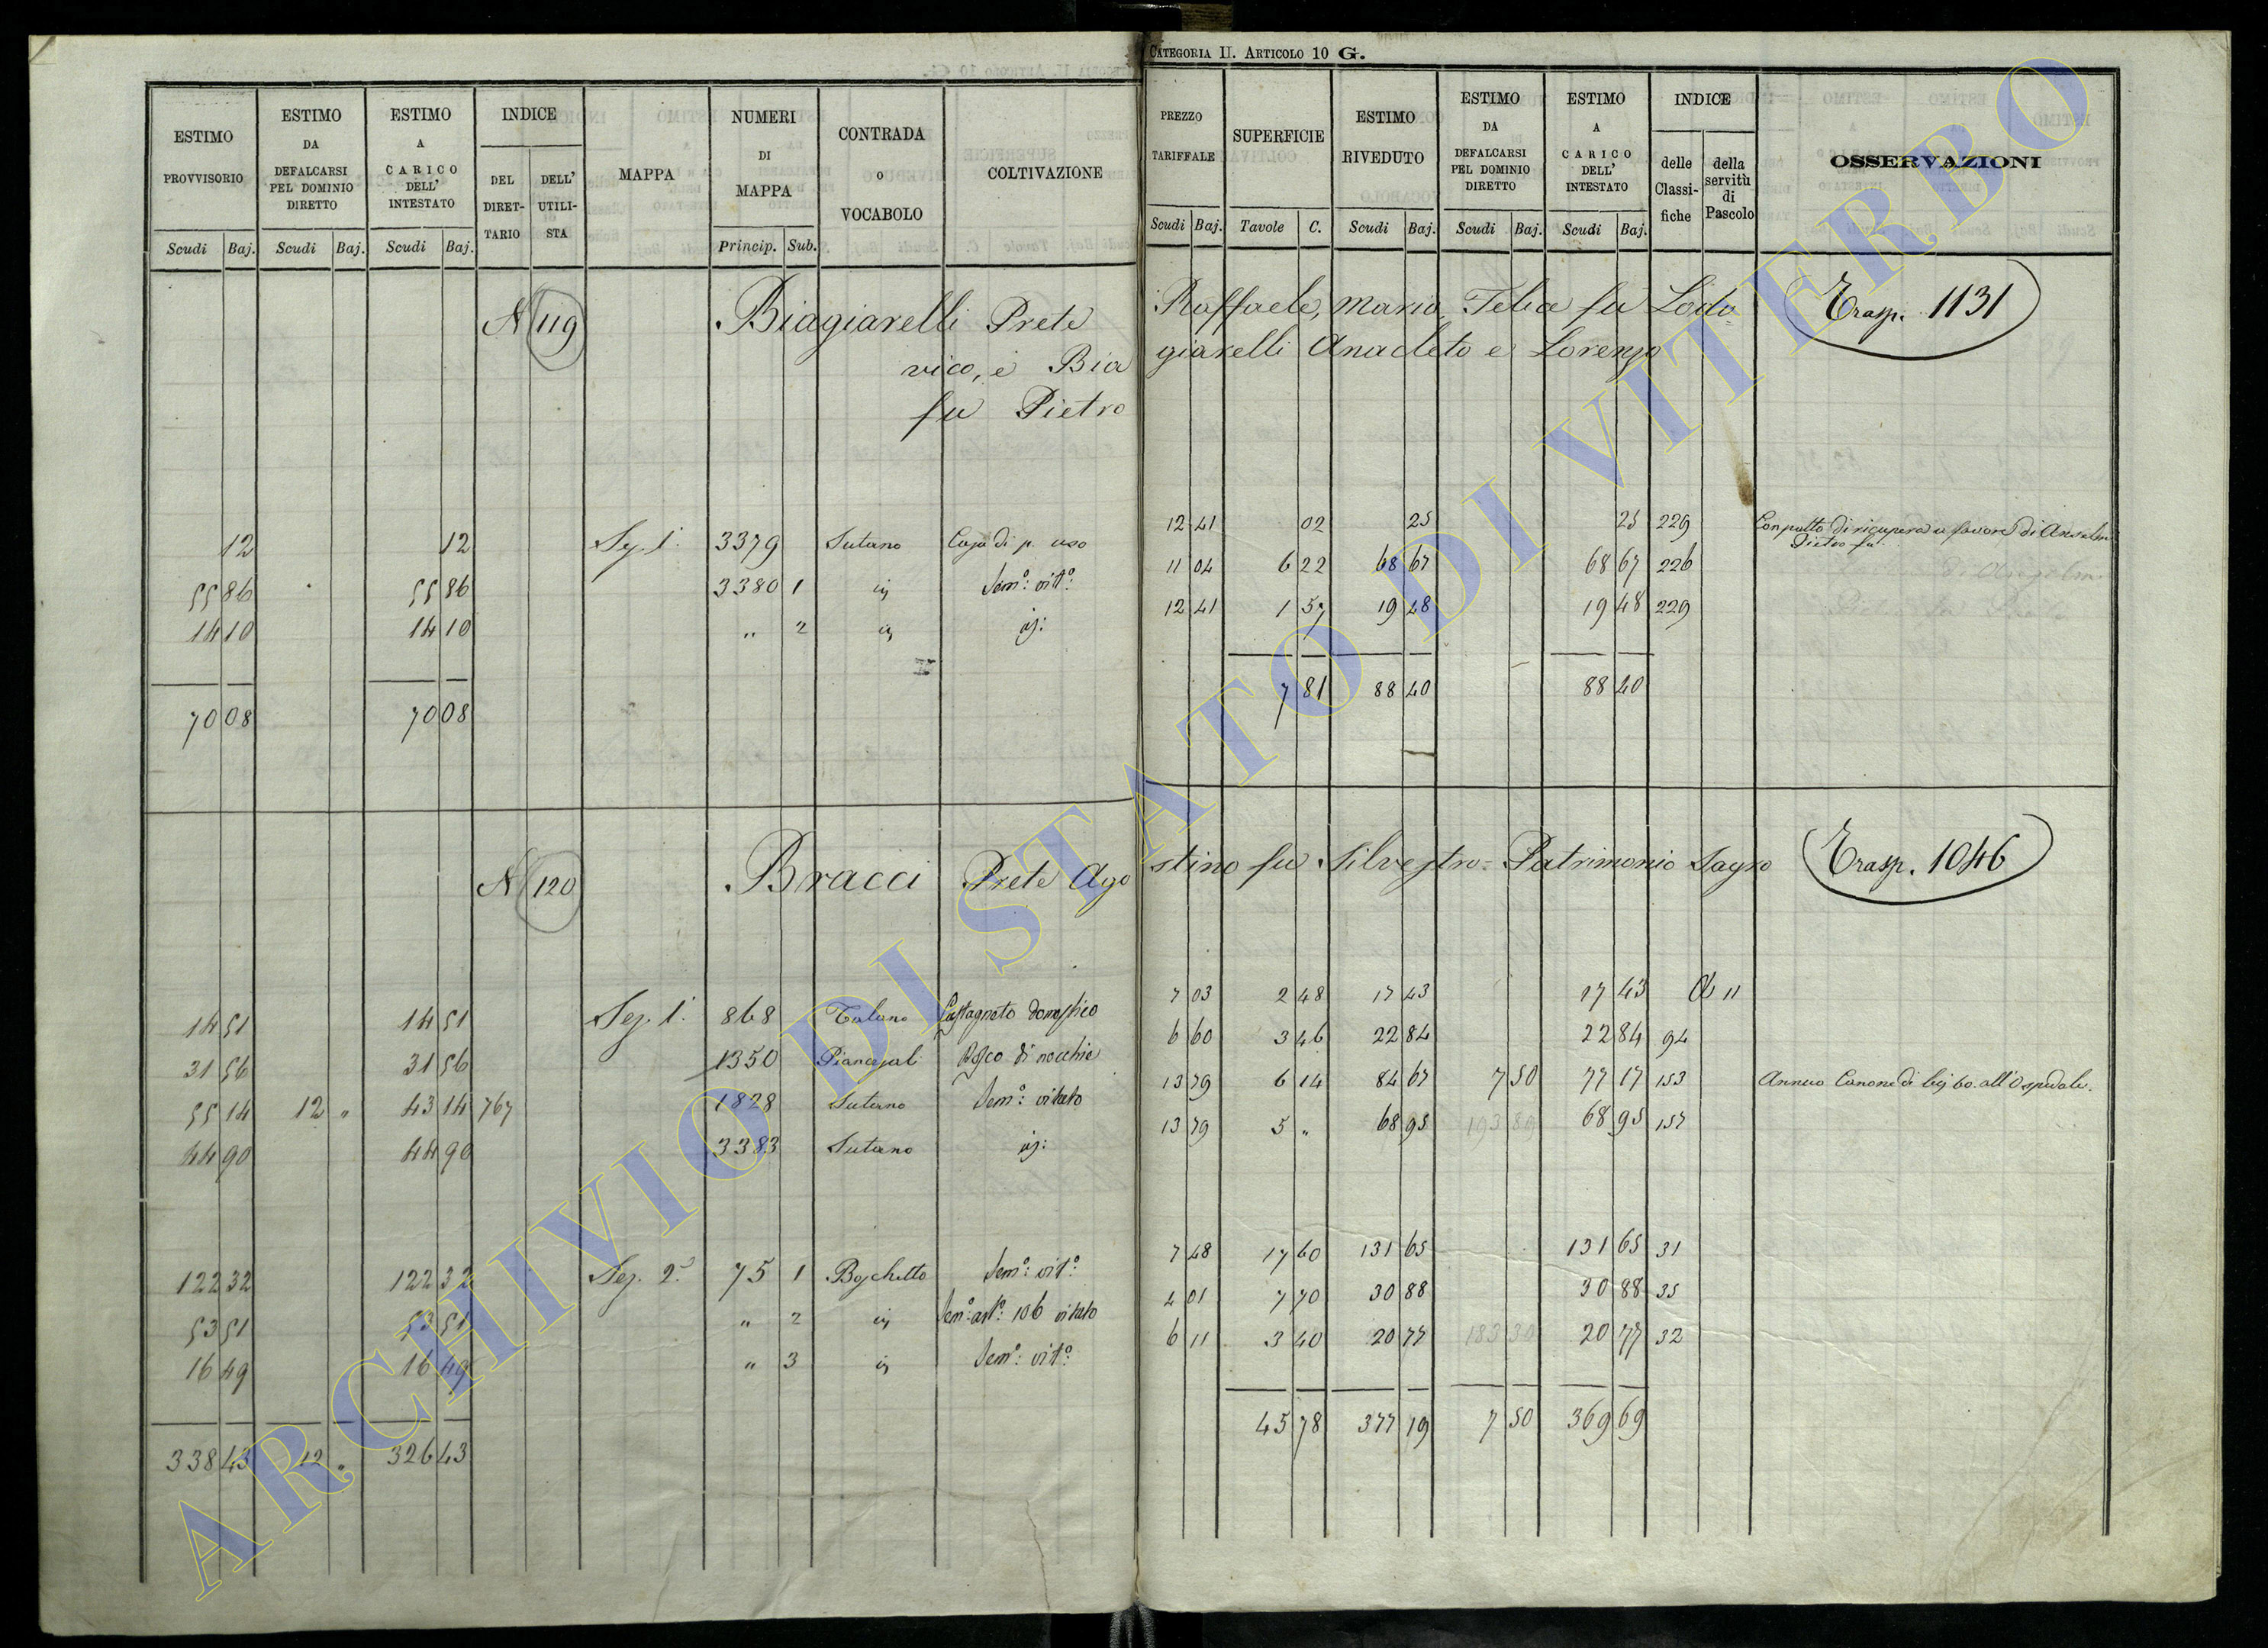 CATEGORIA II. ARTICOLO 10 G.
ESTIMO PROVVISORIO
ESTIMO DA DEFALCARSI PEL DOMINIO DIRETTO
ESTIMO A CARICO DELL' INTESTATO
INDICE
DEL DIRETTARIO
DELL' UTILISTA
MAPPA
NUMERI DI MAPPA
CONTRADA O VOCABOLO
COLTIVAZIONE
Scudi Baj. Scudi Baj. Scudi Baj. Princip. Sub.
PREZZO TARIFFALE
SUPERFICIE
ESTIMO RIVEDUTO
ESTIMO DA DEFALCARSI PEL DOMINIO DIRETTO
ESTIMO A CARICO DELL' INTESTATO
INDICE
delle Classifiche
della servitù di Pascolo
OSSERVAZIONI
Scudi Baj. Tavole C. Scudi Baj. Scudi Baj. Scudi Baj.
N 119 Biagiarelli Prete Raffaele, Maria, Felice fu Lodo= Trasp. 1131
vico, e Bia giarelli Anacleto e Lorenzo
fu Pietro
12 12 Sez. 1ª 3379 Sutano Casa di p. uso 12 41 02 25 25 229 Con patto di ricupera a favore di
Pietro fu
55 86 55 86 3380 1 Sem.º vit.º 11 04 6 22 68 67 68 67 226
14 10 14 10 " 2 12 41 1 57 19 48 19 48 229
70 08 70 08 7 81 88 40 88 40
N 120 Bracci Prete Ago stino fu Silvestro= Patrimonio Sagro Trasp. 1046
14 51 14 51 Sez. 1ª 868 Castagneto domestico 7 03 2 48 17 43 17 43 11
31 56 31 56 1350 di nocchie 6 60 3 46 22 84 22 84 94
55 14 12 " 43 14 767 1828 Sutano Sem.º vitato 13 79 6 14 84 67 7 50 77 17 153 Annuo Canone di 60. all'Ospedale.
44 90 44 90 3383 Sutano 13 79 5 " 68 95 193 89 68 95 157
122 32 122 32 Sez. 2ª 75 1 Boschetto Sem.º vit.º 7 48 17 60 131 65 131 65 31
53 51 53 51 " 2 Sem.º 106 vitato 4 01 7 70 30 88 30 88 35
16 49 16 49 " 3 Sem.º vit.º 6 11 3 40 20 77 183 30 20 77 32
338 43 12 " 326 43 45 78 377 19 7 50 369 69
ARCHIVIO DI STATO DI VITERBO